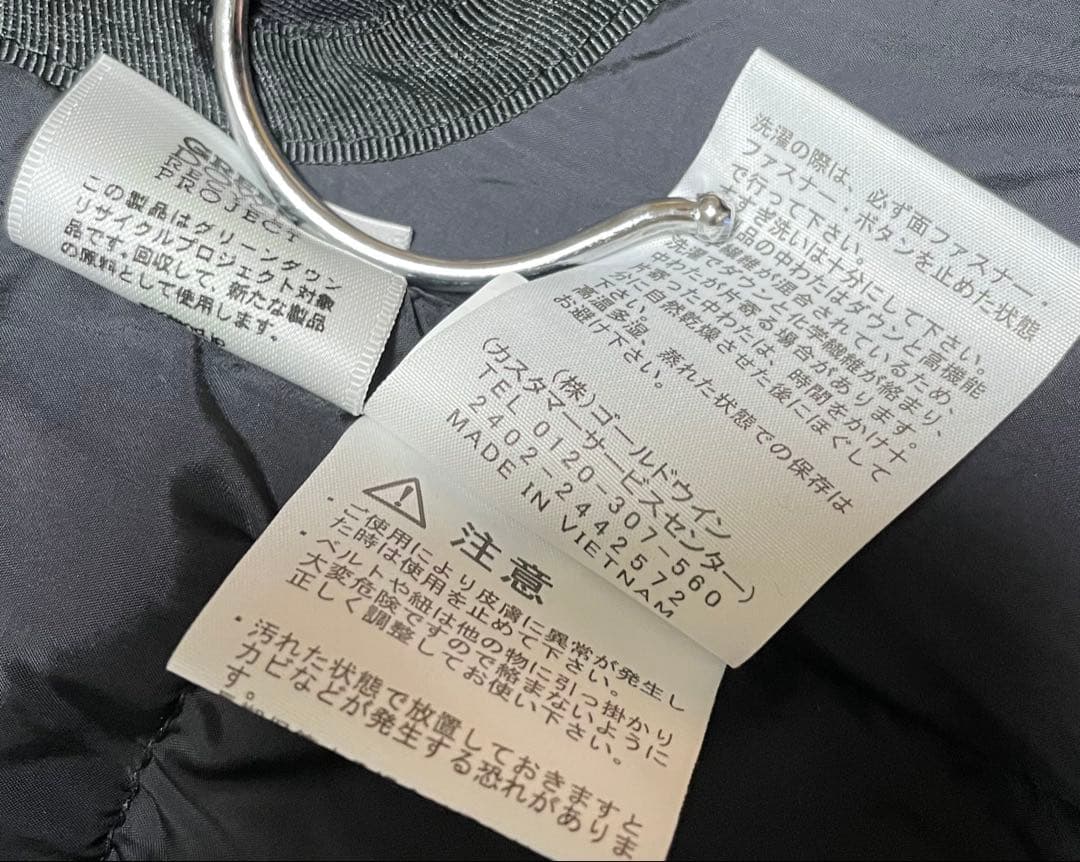 GREEN
DOWN
RECYCLE
PROJECT
この製品はグリーンダウン
リサイクルプロジェクト対象
品です。回収して、新たな製品
の原料として使用します。
洗濯の際は、必ず面ファスナー・
ファスナー・ボタンを止めた状態
で行って下さい。
すすぎ洗いは十分にして下さい。
品の中わたはダウンと高機能
繊維が混合されているため、
洗濯でダウンと化学繊維が絡まり、
中わたが片寄る場合があります。
片寄った中わたは、時間をかけ十
分に自然乾燥させた後にほぐして
下さい。
高温多湿、蒸れた状態での保存は
お避け下さい。
(株)ゴールドウイン
(カスタマーサービスセンター)
TEL 0120-307-560
2402-2442572
MADE IN VIETNAM
注意
・ご使用により皮膚に異常が発生し
た時は使用を止めて下さい。
・ベルトや紐は他の物に引っ掛かり
大変危険ですので絡まないように
正しく調整してお使い下さい。
・汚れた状態で放置しておきますと
カビなどが発生する恐れがありま
す。